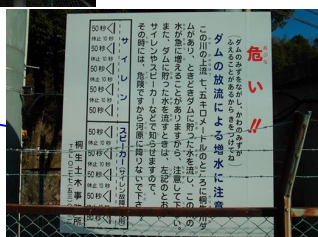 危い!!
ダムのみずをながし、かわのみずが
ふえることがあるから きをつけてね
ダムの放流による増水に注意
この川の上流 七、五キロメートルのところに桐生川ダ
ムがあり、ときどきダムに貯った水を流し、この川の
水が急に増えることがありますから、注意して下さい。
また、ダムに貯った水を流すときは、左記のとおり
サイレンやスピーカーなどで知らせますので、
その時には、危険ですから河原に降りないで下さい。
サイレン
50秒
休止10秒
50秒
休止10秒
50秒
休止10秒
50秒
スピーカー(サイレン障害用)
50秒
休止10秒
50秒
休止10秒
50秒
休止10秒
50秒
桐生土木事務所